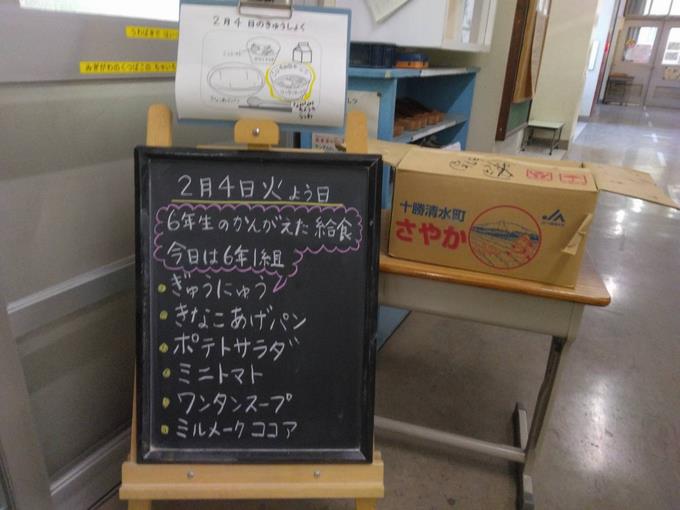 2月4日のきゅうしょく
2月4日火よう日
6年生のかんがえた給食
今日は6年1組
ぎゅうにゅう
きなこあげパン
ポテトサラダ
ミニトマト
ワンタンスープ
ミルメークココア
十勝清水町
さやか
JA